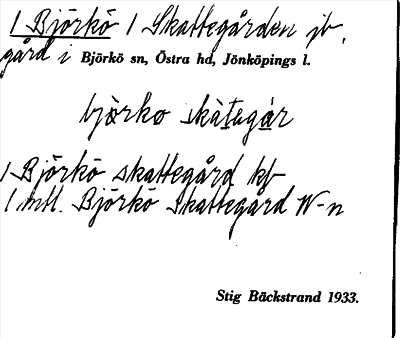 1 Björkö / Skattegården jb,
gård i Björkö sn, Östra hd, Jönköpings l.
björko skàtegár
1 Björkö skattegård kb
1 mtl. Björkö Skattegård W-n
Stig Bäckstrand 1933.